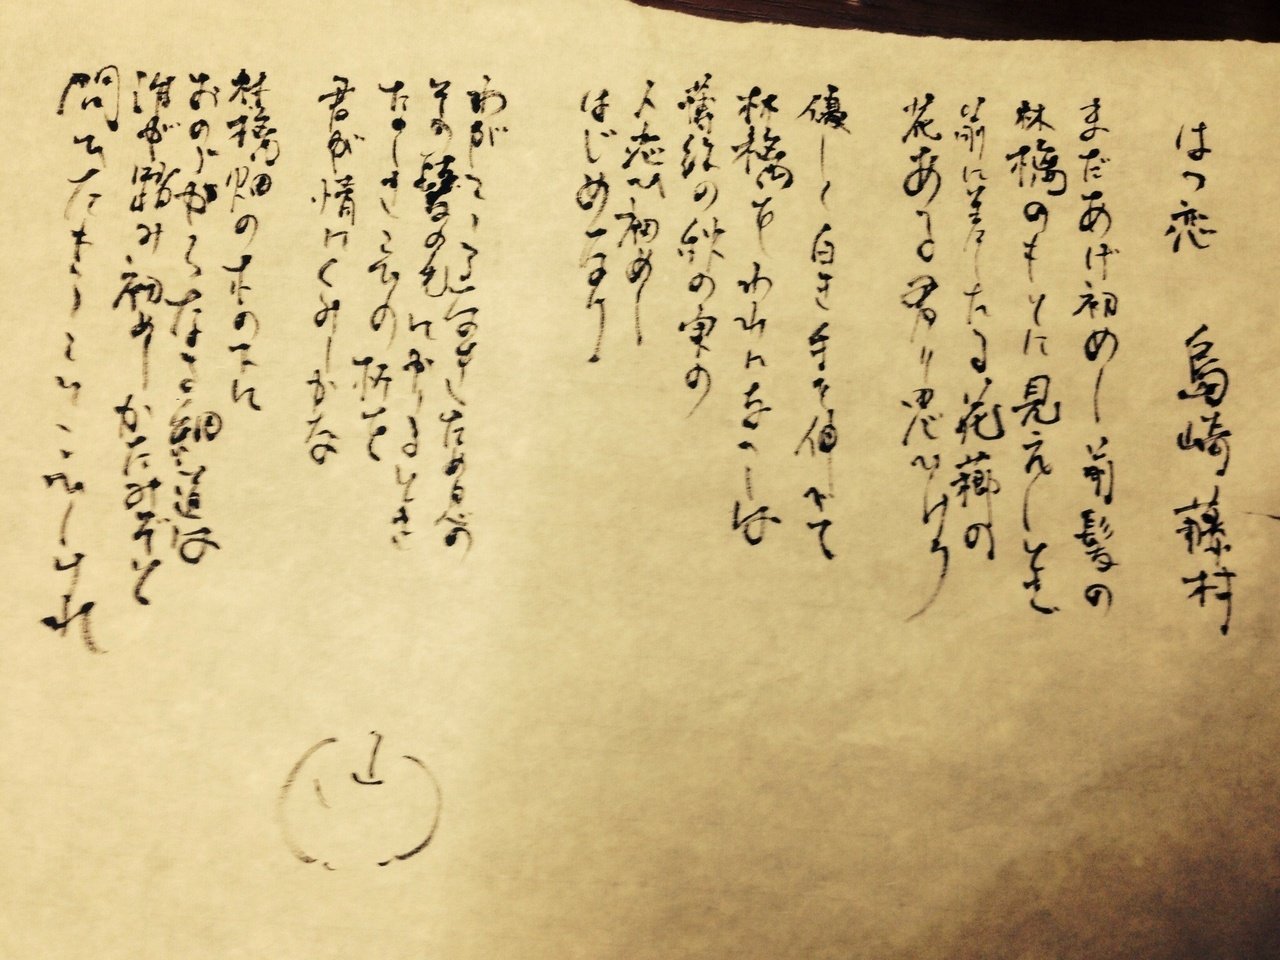 はつ恋 島崎藤村
まだあげ初めし前髪の
林檎のもとに見えしとき
前に差したる花櫛の
花ある君と思ひけり
優しく白き手を伸べて
林檎をわれにあたへしは
薄紅の秋の実の
人恋ひ初めし
はじめなり
わがこゝろなきためいきの
その髪の毛にかゝるとき
たのしき恋の杯を
君が情にくみしかな
林檎畑の木の下に
おのづからなる細道は
誰が踏み初めしかたみぞと
問ひたまふこそこひしけれ